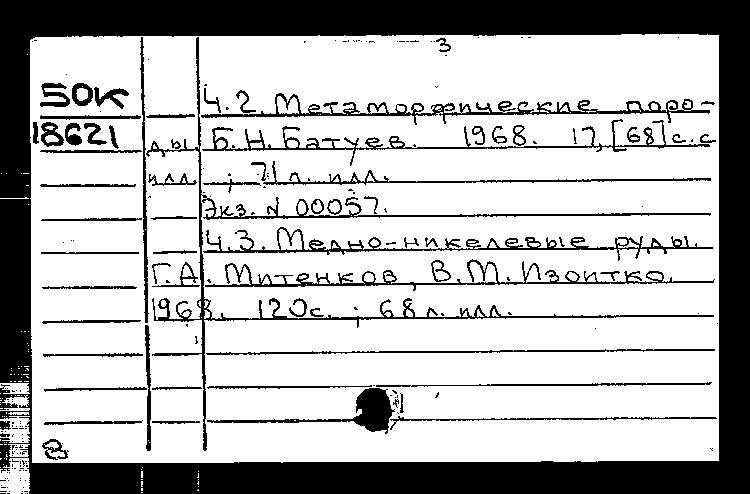 3
50К 4.2. Метаморфические поро-
18621 ды. Б.Н. Батуев. 1968. 17, [68] с. с
илл. ; 71 л. илл.
Экз. N 00057.
4.3. Медно-никелевые руды.
Г.А. Митенков, В.М. Изоитко.
1968. 120с. ; 68 л. илл.
8